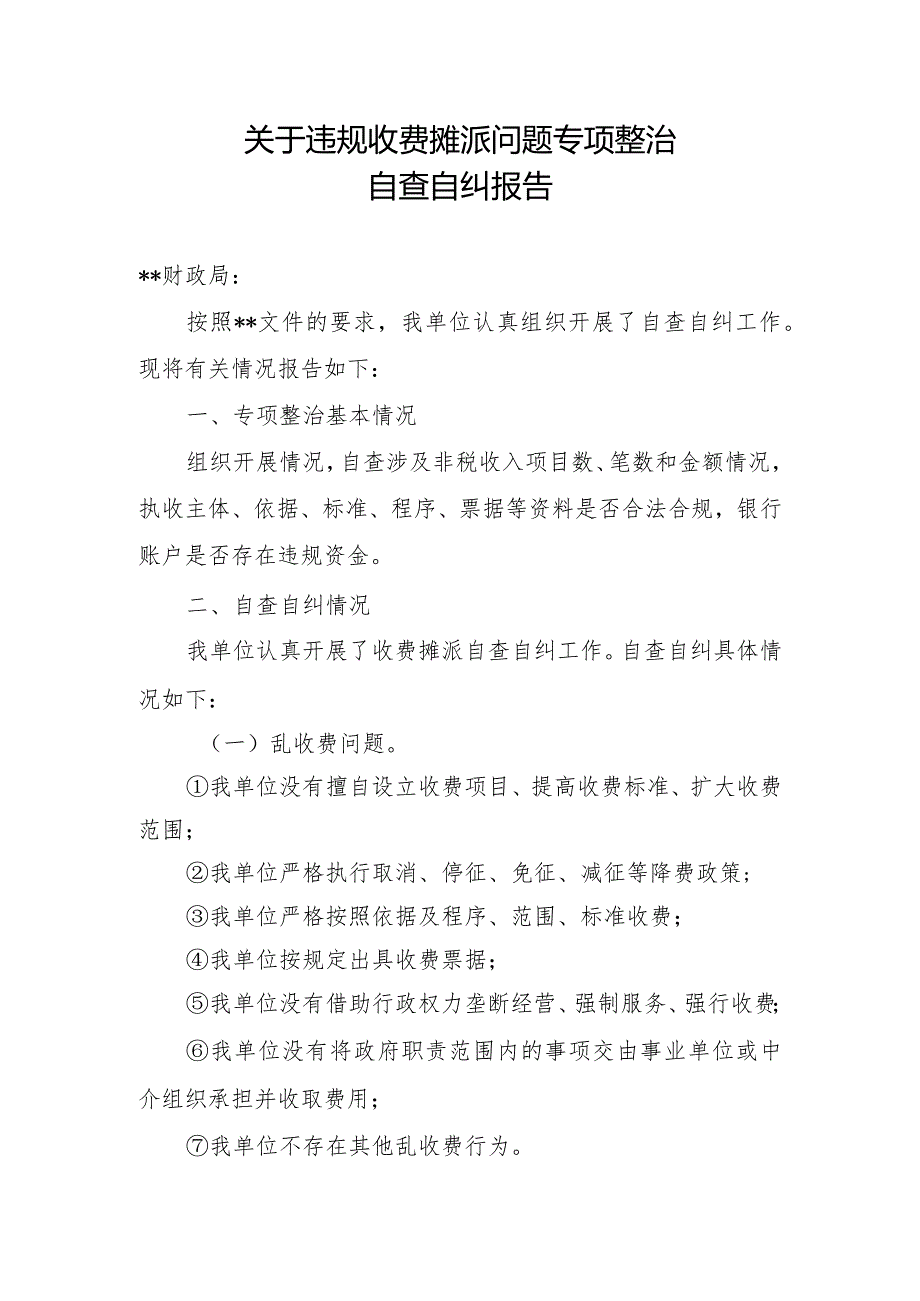 关于违规收费摊派问题专项整治
自查自纠报告
**财政局：
按照**文件的要求，我单位认真组织开展了自查自纠工作。
现将有关情况报告如下：
一、专项整治基本情况
组织开展情况，自查涉及非税收入项目数、笔数和金额情况，
执收主体、依据、标准、程序、票据等资料是否合法合规，银行
账户是否存在违规资金。
二、自查自纠情况
我单位认真开展了收费摊派自查自纠工作。自查自纠具体情
况如下：
（一）乱收费问题。
①我单位没有擅自设立收费项目、提高收费标准、扩大收费
范围；
②我单位严格执行取消、停征、免征、减征等降费政策；
③我单位严格按照依据及程序、范围、标准收费；
④我单位按规定出具收费票据；
⑤我单位没有借助行政权力垄断经营、强制服务、强行收费；
⑥我单位没有将政府职责范围内的事项交由事业单位或中
介组织承担并收取费用；
⑦我单位不存在其他乱收费行为。